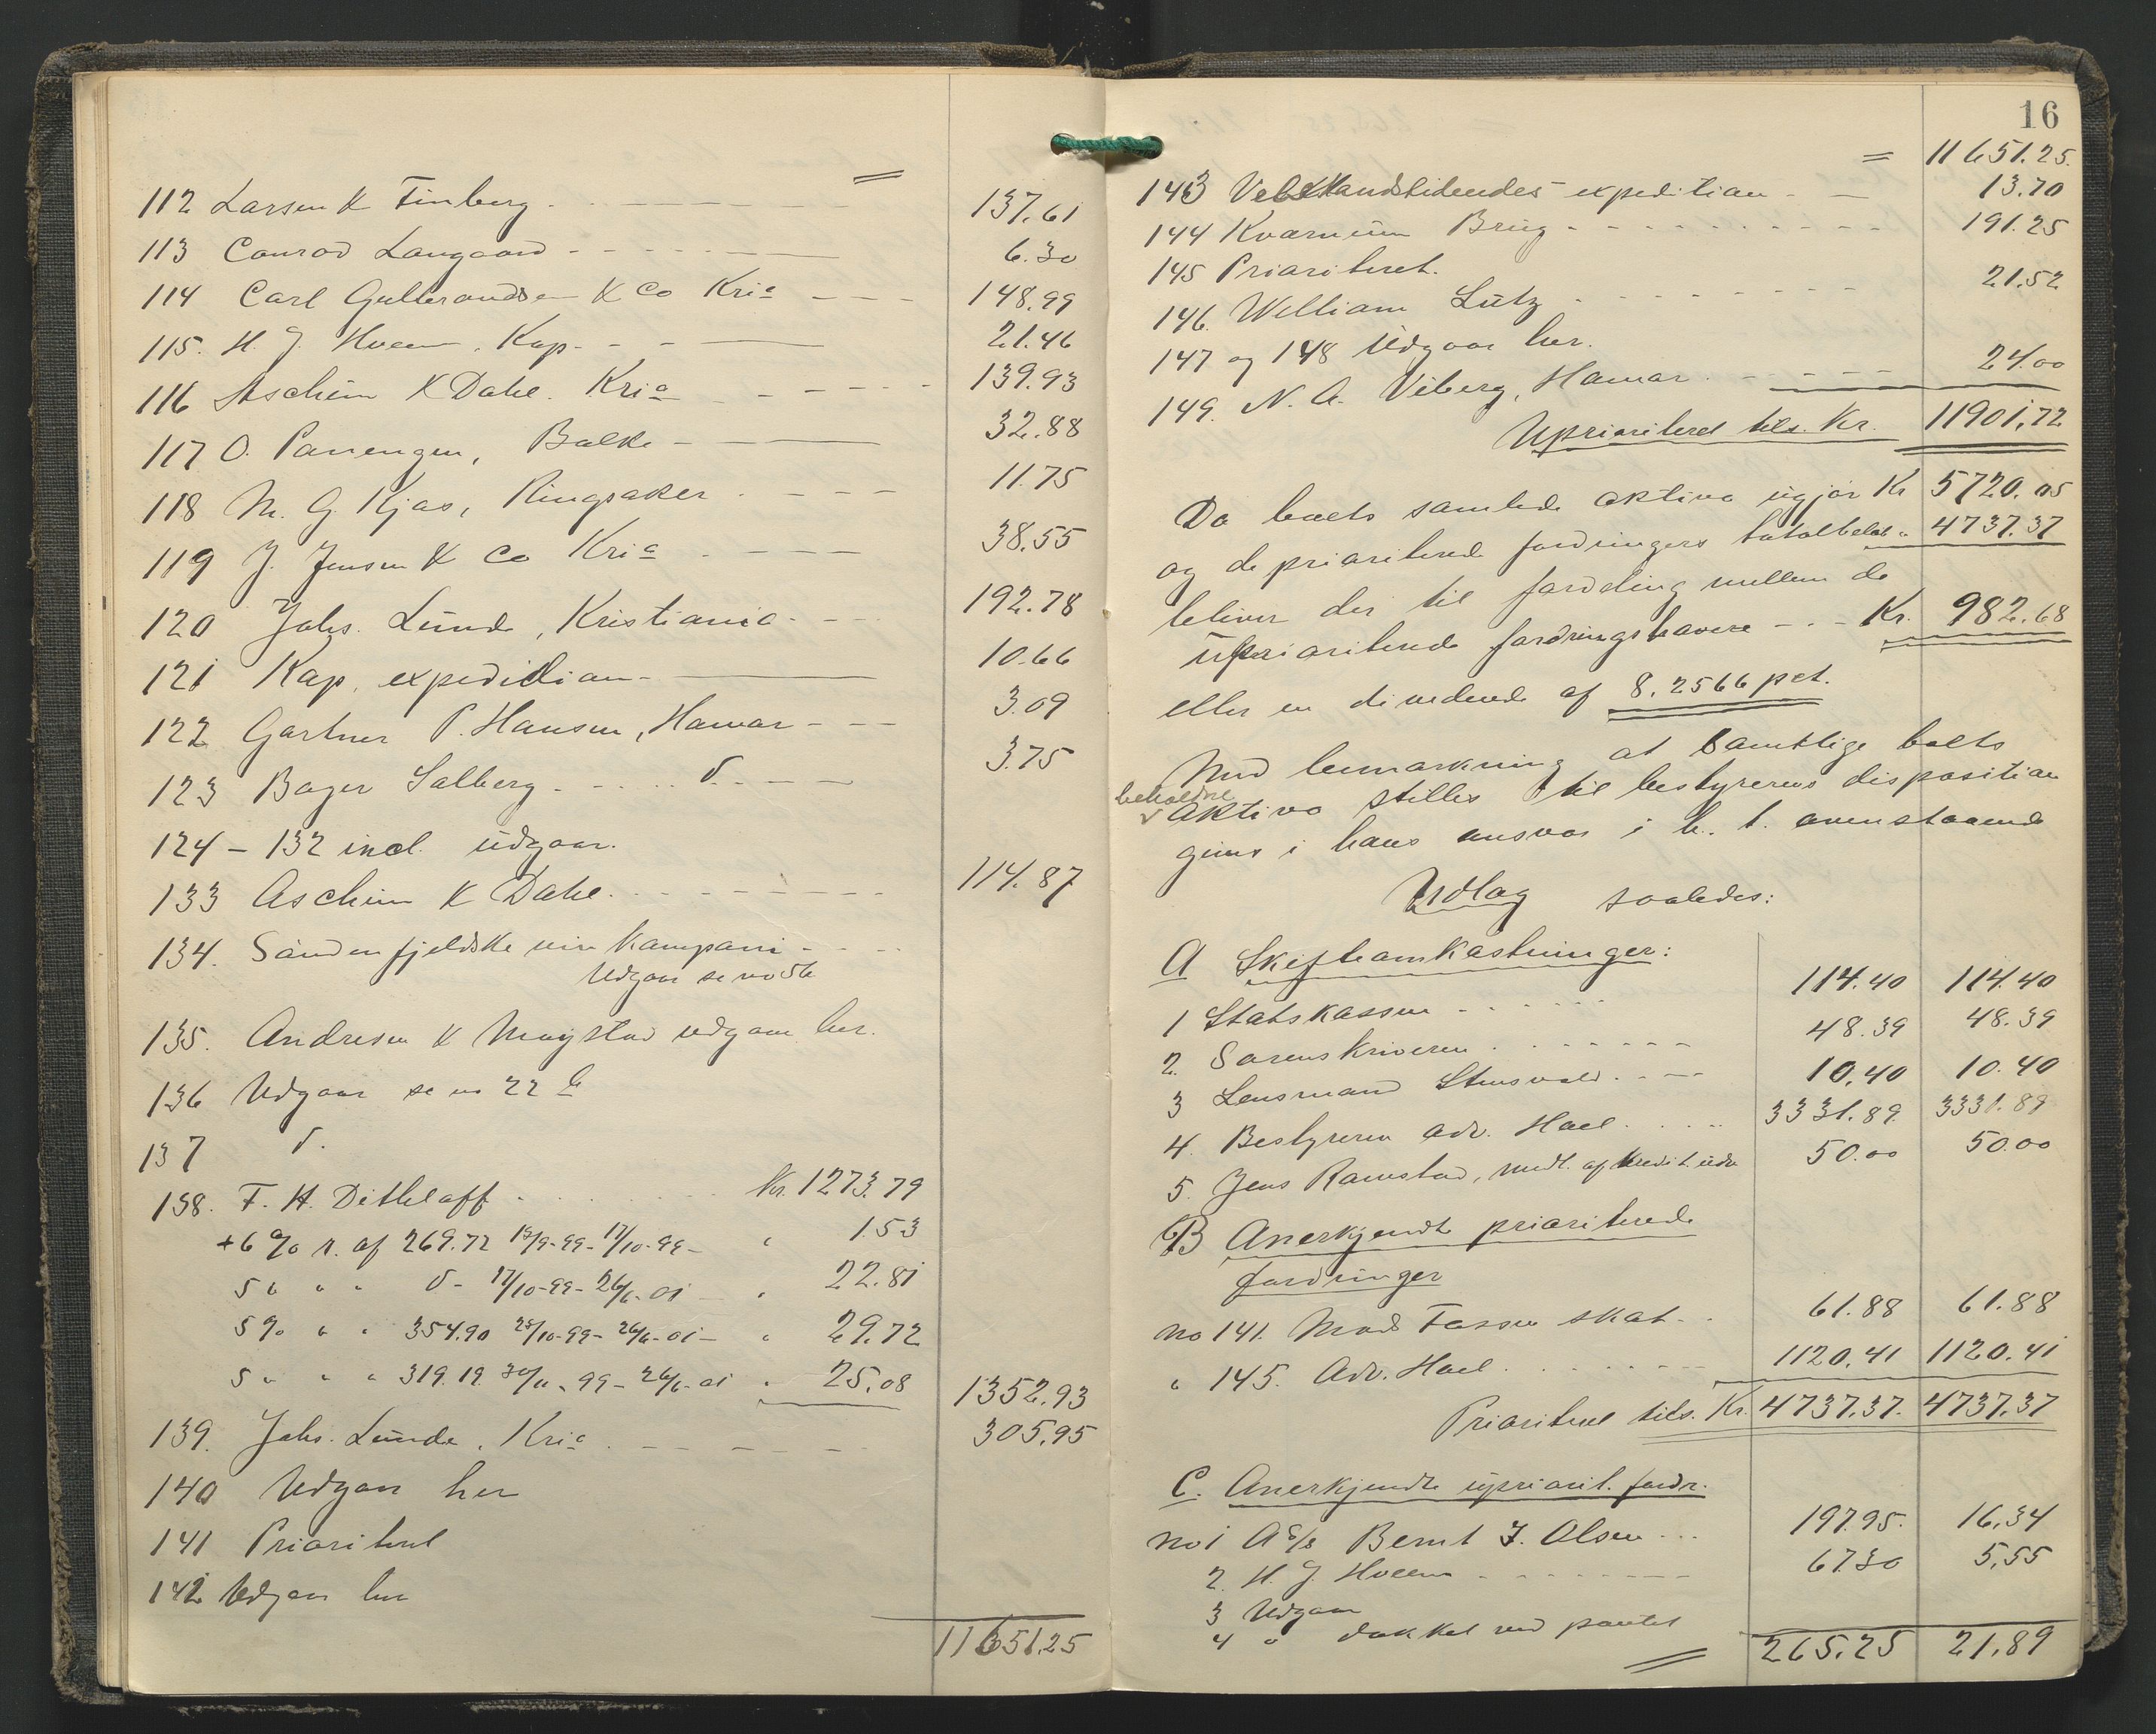 =
112 Larsen & Finberg - 137.61
113 Conrad Langaard - 6.30
114 Carl Gulbrandsen & Co Kria - 148.99
115. H. J. Hveem, Kap - 21.46
116 Aschim & Dahl. Kria - 139.93
117 O. Parrengen, Balke - 32.88
118 M. G Kjos, Ringsaker - 11.75
119 J. Jensen & Co Kria - 38.55
120 Johs. Lunde, Kristiania - 192.78
121 Kap. expedition - 10.66
122 Gartner P. Hansen, Hamar - 3.09
123 Bager Solberg - d. - 3.75
124 - 132 incl. udgaar.
133 Aschim & Dahl. 114.87
134. Søndenfjeldske vin kompani
Udgaar se no 56
135. Andresen & Mogstad udgaar her.
136 Udgaar se no 22 b
137 d.
138. F. H. Dithloff Kr. 1273.79
+ 6 % r. af 269.72 13/9-99 - 17/10-99 - " 1.53
5 " " " d - 17/10-99 - 26/6-01 " 22.81
5 % " " 354.90 25/10-99 - 26/6-01 - " 29.72
5 " " " 319.19. 30/11-99 - 26/6-01 " 25.08 1352.93
139. Johs. Lunde, Kria 305.95
140 Udgaar her
141 Prioriteret
142 Udgaar her
11651.25
16
= 11651.25.
143 Velstandstidendes expedition - 13.70
144 Kværnum Brug - 191.25
145 Prioriteret.
146. William Lutz - 21.52
147 og 148 Udgaar her.
149. N. A. Viberg, Hamar - 24.00
Uprioriteret tils. Kr. 11901.72
Da boets samlede aktiva ugjør Kr 5720.05
og de prioriterede fordringers totalbeløb " 4737.37
bliver der til fordeling mellem de
uprioriterede fordringshavere - - Kr. 982.68
eller en dividende af 8.2566 pct.
Med bemærkning at samtlige boets
beholdne
aktiva stilles til bestyrerens disposition
gives i hans ansvar i h. t. ovenstaaende
Udlæg saaledes:
A Skifteomkostninger:
1 Statskassen - 114.40 114.40
2. Sorenskriveren 48.39 48.39
3 Lensmand Stensvold 10.40 10.40
4. Bestyreren adv. Hoel 3331.89. 3331.89
5. Jens Ramstad, medl. af kredit. udv 50.00 50.00
B Anerkjendte prioriterede
fordringer
no 141. Mads Fossen skat - 61.88 61.88
" 145. Adv. Hoel 1120.41 1120.41
Prioriteret tils. Kr. 4737.37. 4737.37
C. Anerkjendte upriorit. fordr.
no 1 A/S Bernt J. Olsen 197.95. 16.34
2. H. J. Hveem 67.30 5.55
3 Udgaar
4 " dækket ved pantet
= 265.25 21.89